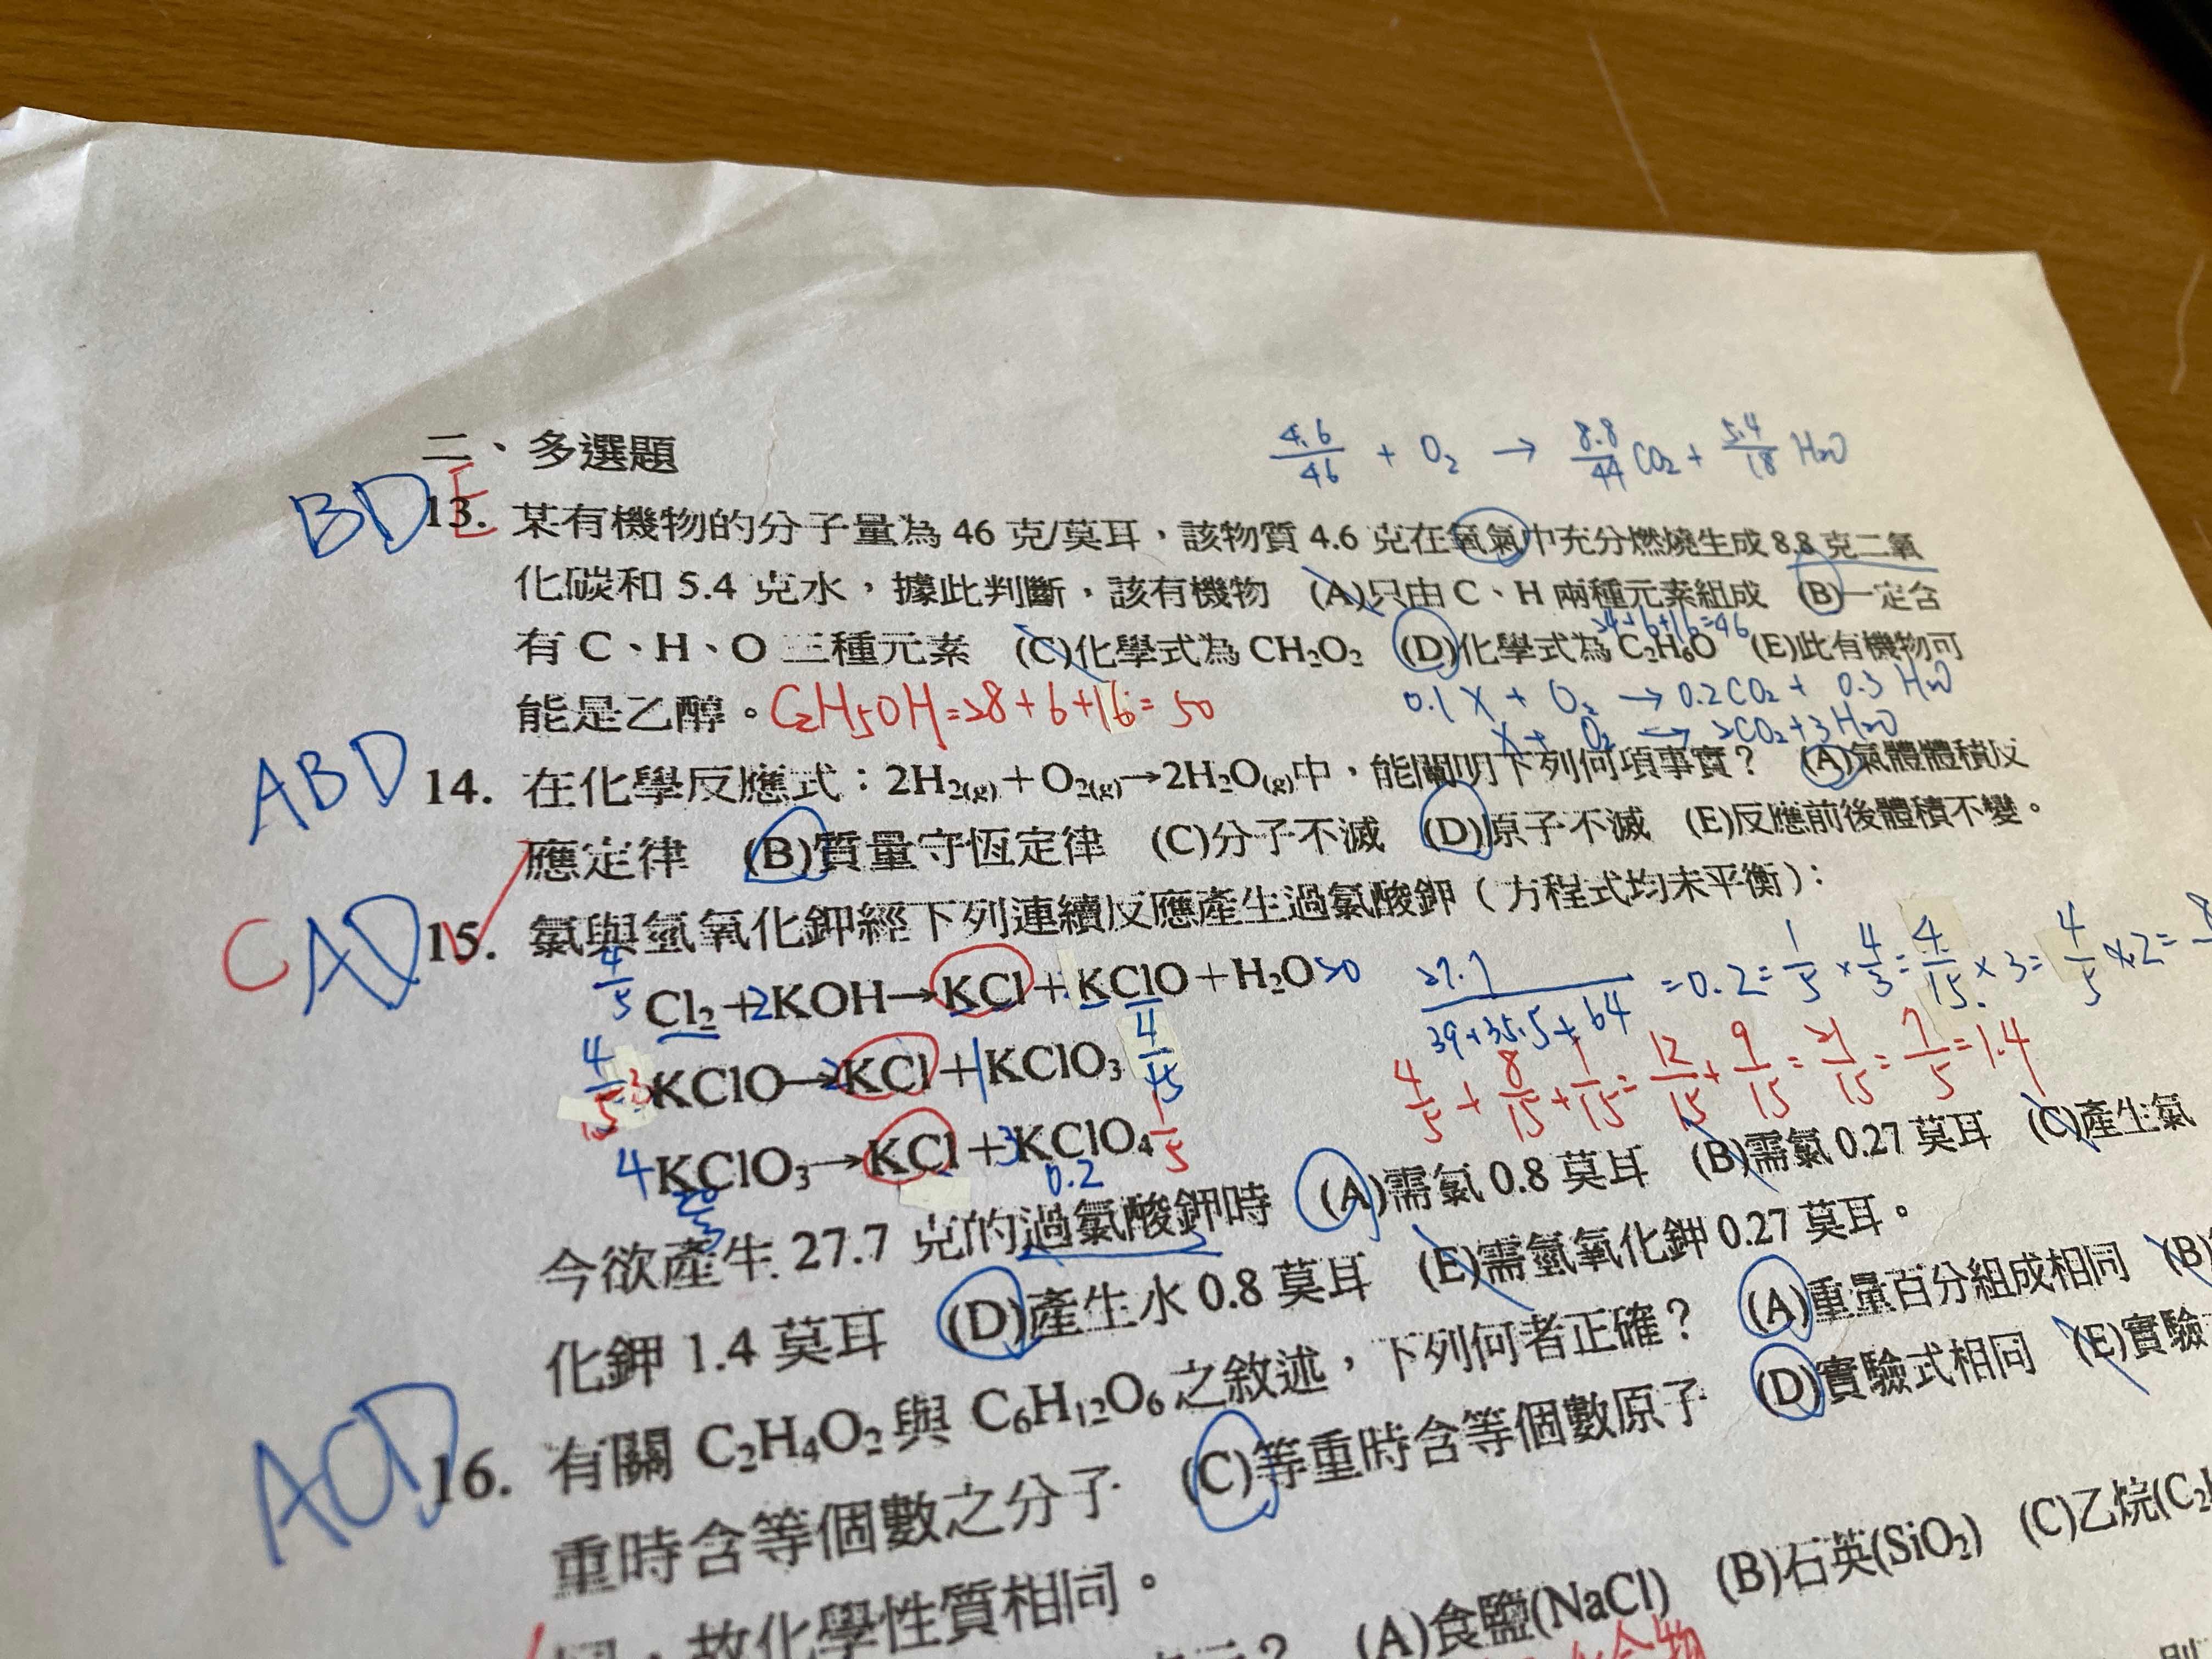 二、多選題
4.6/46 + O₂ → 8.8/44 CO₂ + 5.4/18 H₂O
BD E
13. 某有機物的分子量為 46 克/莫耳，該物質 4.6 克在氧氣中充分燃燒生成 8.8 克二氧
化碳和 5.4 克水，據此判斷，該有機物 (A)只由 C、H 兩種元素組成 (B)一定含
24+6+16=46
有 C、H、O 三種元素 (C)化學式為 CH₂O₂ (D)化學式為 C₂H₆O (E)此有機物可
能是乙醇。 C₂H₅OH=28+6+16=50 0.1 X + O₂ → 0.2CO₂ + 0.3 H₂O
X + O₂ → 2CO₂+3H₂O
ABD
14. 在化學反應式：2H₂(g)+O₂(g)→2H₂O(g)中，能闡明下列何項事實？ (A)氣體體積反
應定律 (B)質量守恆定律 (C)分子不滅 (D)原子不滅 (E)反應前後體積不變。
C AD
15. 氯與氫氧化鉀經下列連續反應產生過氯酸鉀（方程式均未平衡）：
4/5 Cl₂+2KOH→KCl+KClO+H₂O 27.7/(39+35.5+64) =0.2= 1/5 × 4/3 = 4/15 × 3= 4/5 ×2=
4/5 3KClO→2KCl+1KClO₃ 4/15 4/5 + 8/15 + 1/15 = 12/15 + 9/15 = 21/15 = 7/5 =1.4
4KClO₃→KCl+3KClO₄ 1/5
0.2
今欲產生 27.7 克的過氯酸鉀時 (A)需氯 0.8 莫耳 (B)需氯 0.27 莫耳 (C)產生氯
化鉀 1.4 莫耳 (D)產生水 0.8 莫耳 (E)需氫氧化鉀 0.27 莫耳。
ACD
16. 有關 C₂H₄O₂ 與 C₆H₁₂O₆ 之敘述，下列何者正確？ (A)重量百分組成相同 (B)
重時含等個數之分子 (C)等重時含等個數原子 (D)實驗式相同 (E)實驗
，故化學性質相同。
？ (A)食鹽(NaCl) (B)石英(SiO₂) (C)乙烷(C₂
合物